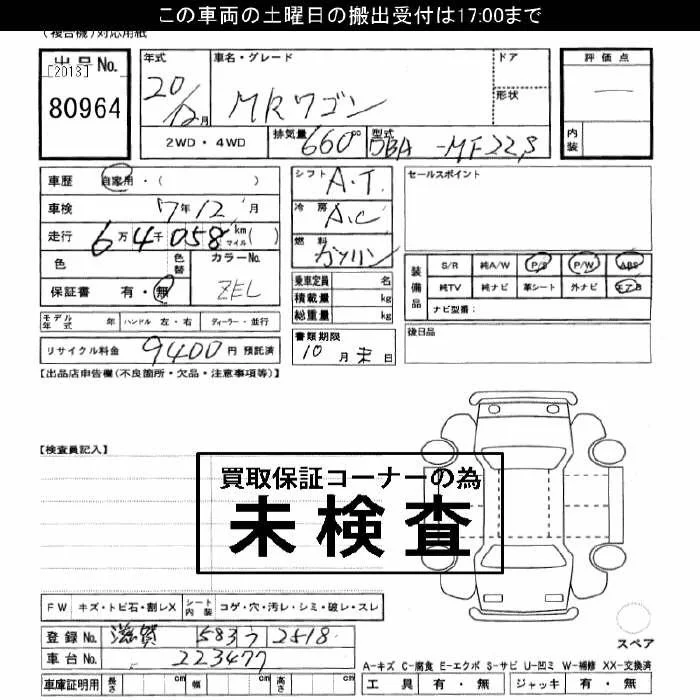 この車両の土曜日の搬出受付は17:00まで
(複合機)対応用紙
出品No.
[2013]
80964
年式 20/12月
車名・グレード MRワゴン
ドア
形状
2WD・4WD
排気量 660cc
型式 DBA-MF22S
評価点
内装
車歴 自家用・( )
車検 7年12月
走行 6万4千058 km マイル( )
色 色替 カラーNo. ZEL
保証書 有・無
モデル年式 年 ハンドル 左・右 ディーラー・並行
リサイクル料金 9400円 預託済
シフト A.T.
冷房 A.C
燃料 ガソリン
乗車定員 名
積載量 kg
総重量 kg
書類期限
10月末日
セールスポイント
装備品
S/R 純A/W P/S P/W ABS
純TV 純ナビ 革シート 外ナビ エアB
ナビ型番:
後日品
【出品店申告欄(不良箇所・欠品・注意事項等)】
【検査員記入】
買取保証コーナーの為
未検査
FW キズ・トビ石・割レX シート内装 コゲ・穴・汚レ・シミ・破レ・スレ
登録No. 滋賀 583 う 2518
車台No. 223477
車庫証明用 長さ cm 幅 cm 高さ cm
スペア
A-キズ C-腐食 E-エクボ S-サビ U-凹ミ W-補修 XX-交換済
工具 有・無 ジャッキ 有・無